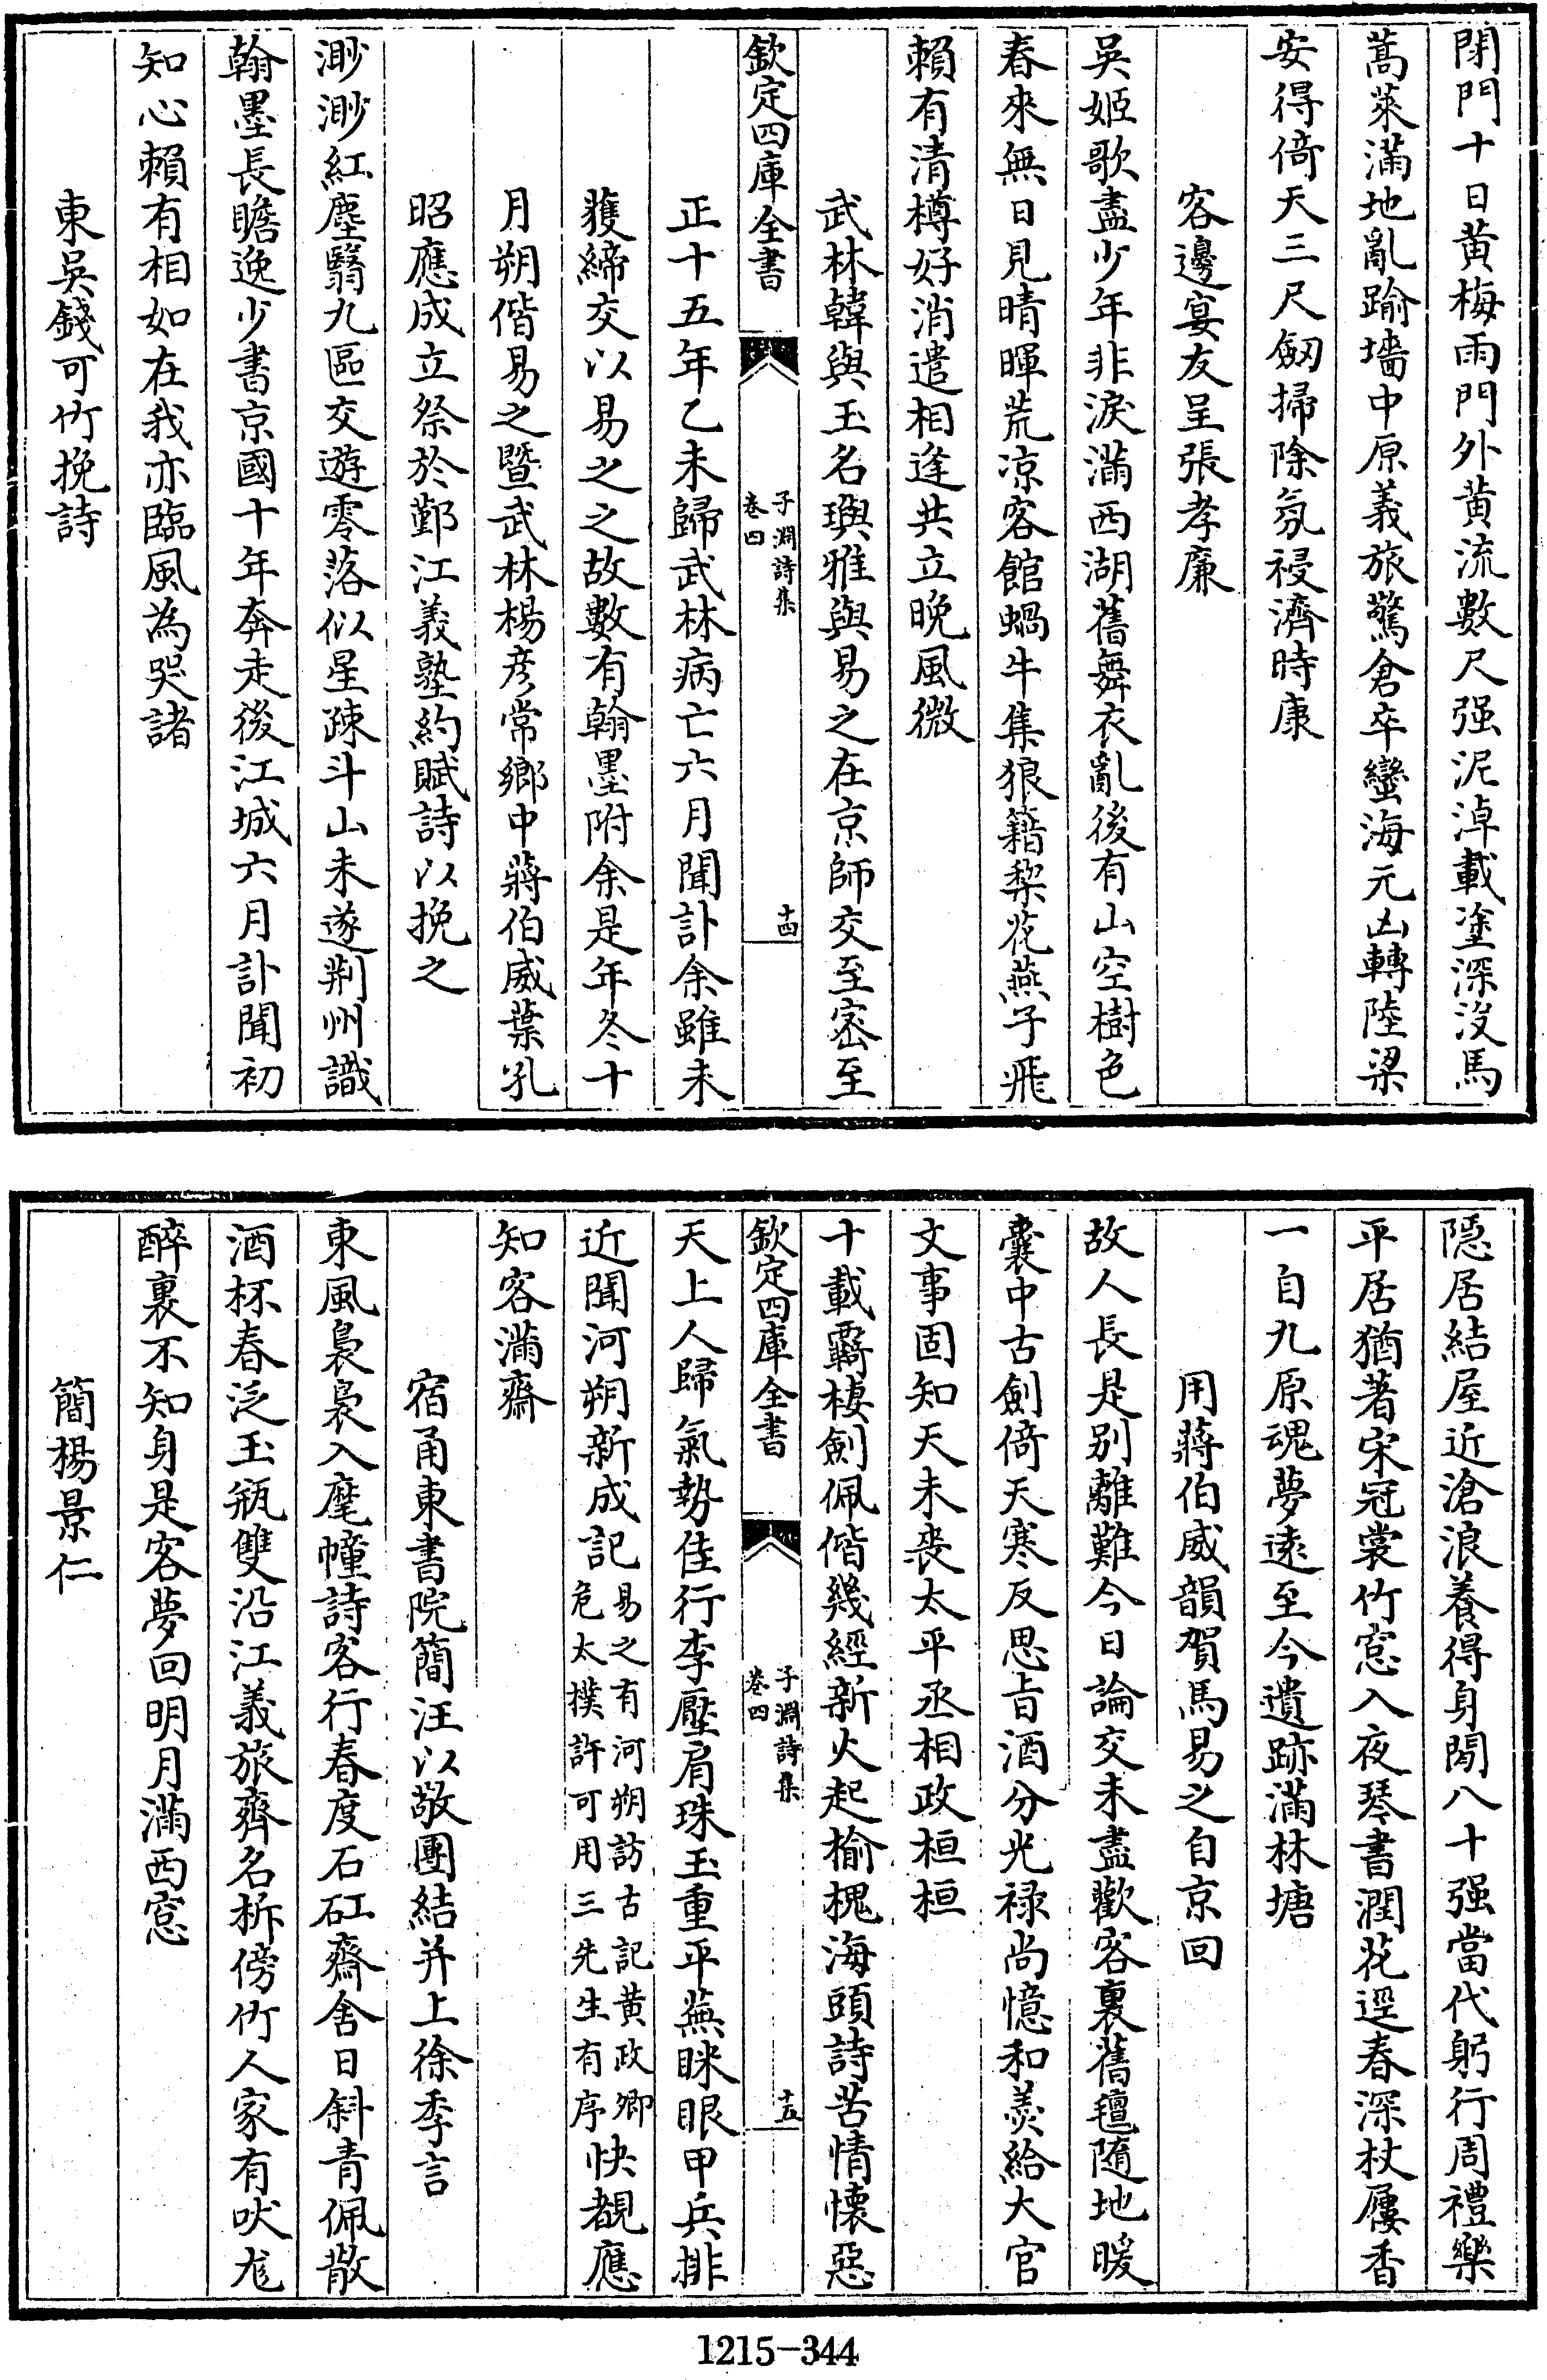 閉門十日黄梅雨門外黄流數尺强泥淖載塗深没馬
蒿萊滿地亂踰墻中原義旅驚倉卒蠻海元凶轉陸梁
安得倚天三尺劒掃除氛祲濟時康
客邊宴友呈張孝廉
吳姬歌盡少年非淚滿西湖舊舞衣亂後有山空樹色
春來無日見晴暉荒凉客館蝸牛集狼籍棃花燕子飛
賴有清樽好消遣相逢共立晚風微
武林韓與玉名璵雅與易之在京師交至宻至
欽定四庫全書
子淵詩集
卷四
十四
正十五年乙未歸武林病亡六月聞訃余雖未
獲締交以易之之故數有翰墨附余是年冬十
月朔偕易之暨武林楊彦常鄉中蔣伯威葉孔
昭應成立祭於鄞江義塾約賦詩以挽之
渺渺紅塵翳九區交遊零落似星疎斗山未遂荆州識
翰墨長瞻逸少書京國十年奔走後江城六月訃聞初
知心賴有相如在我亦臨風為哭諸
東吳錢可竹挽詩
隠居結屋近滄浪養得身閒八十强當代躬行周禮樂
平居猶著宋冠裳竹窓入夜琴書潤花逕春深杖屨香
一自九原魂夢逺至今遺跡滿林塘
用蔣伯威韻賀馬易之自京回
故人長是别離難今日論交未盡歡客裏舊氊隨地暖
囊中古劍倚天寒反思㫖酒分光禄尚憶和羮給大官
文事固知天未喪太平丞相政桓桓
十載覊棲劍佩偕幾經新火起榆槐海頭詩苦情懷惡
欽定四庫全書
子淵詩集
卷四
十五
天上人歸氣勢佳行李壓肩珠玉重平蕪眯眼甲兵排
近聞河朔新成記易之有河朔訪古記黄政卿危太樸許可用三先生有序快覩應
知客滿齋
宿甬東書院簡汪以敬團結并上徐季言
東風裊裊入麾幢詩客行春度石矼齋舍日斜青佩散
酒杯春泛玉瓶雙沿江義旅齊名柝傍竹人家有吠尨
醉裏不知身是客夢回明月滿西窓
簡楊景仁
1215-344